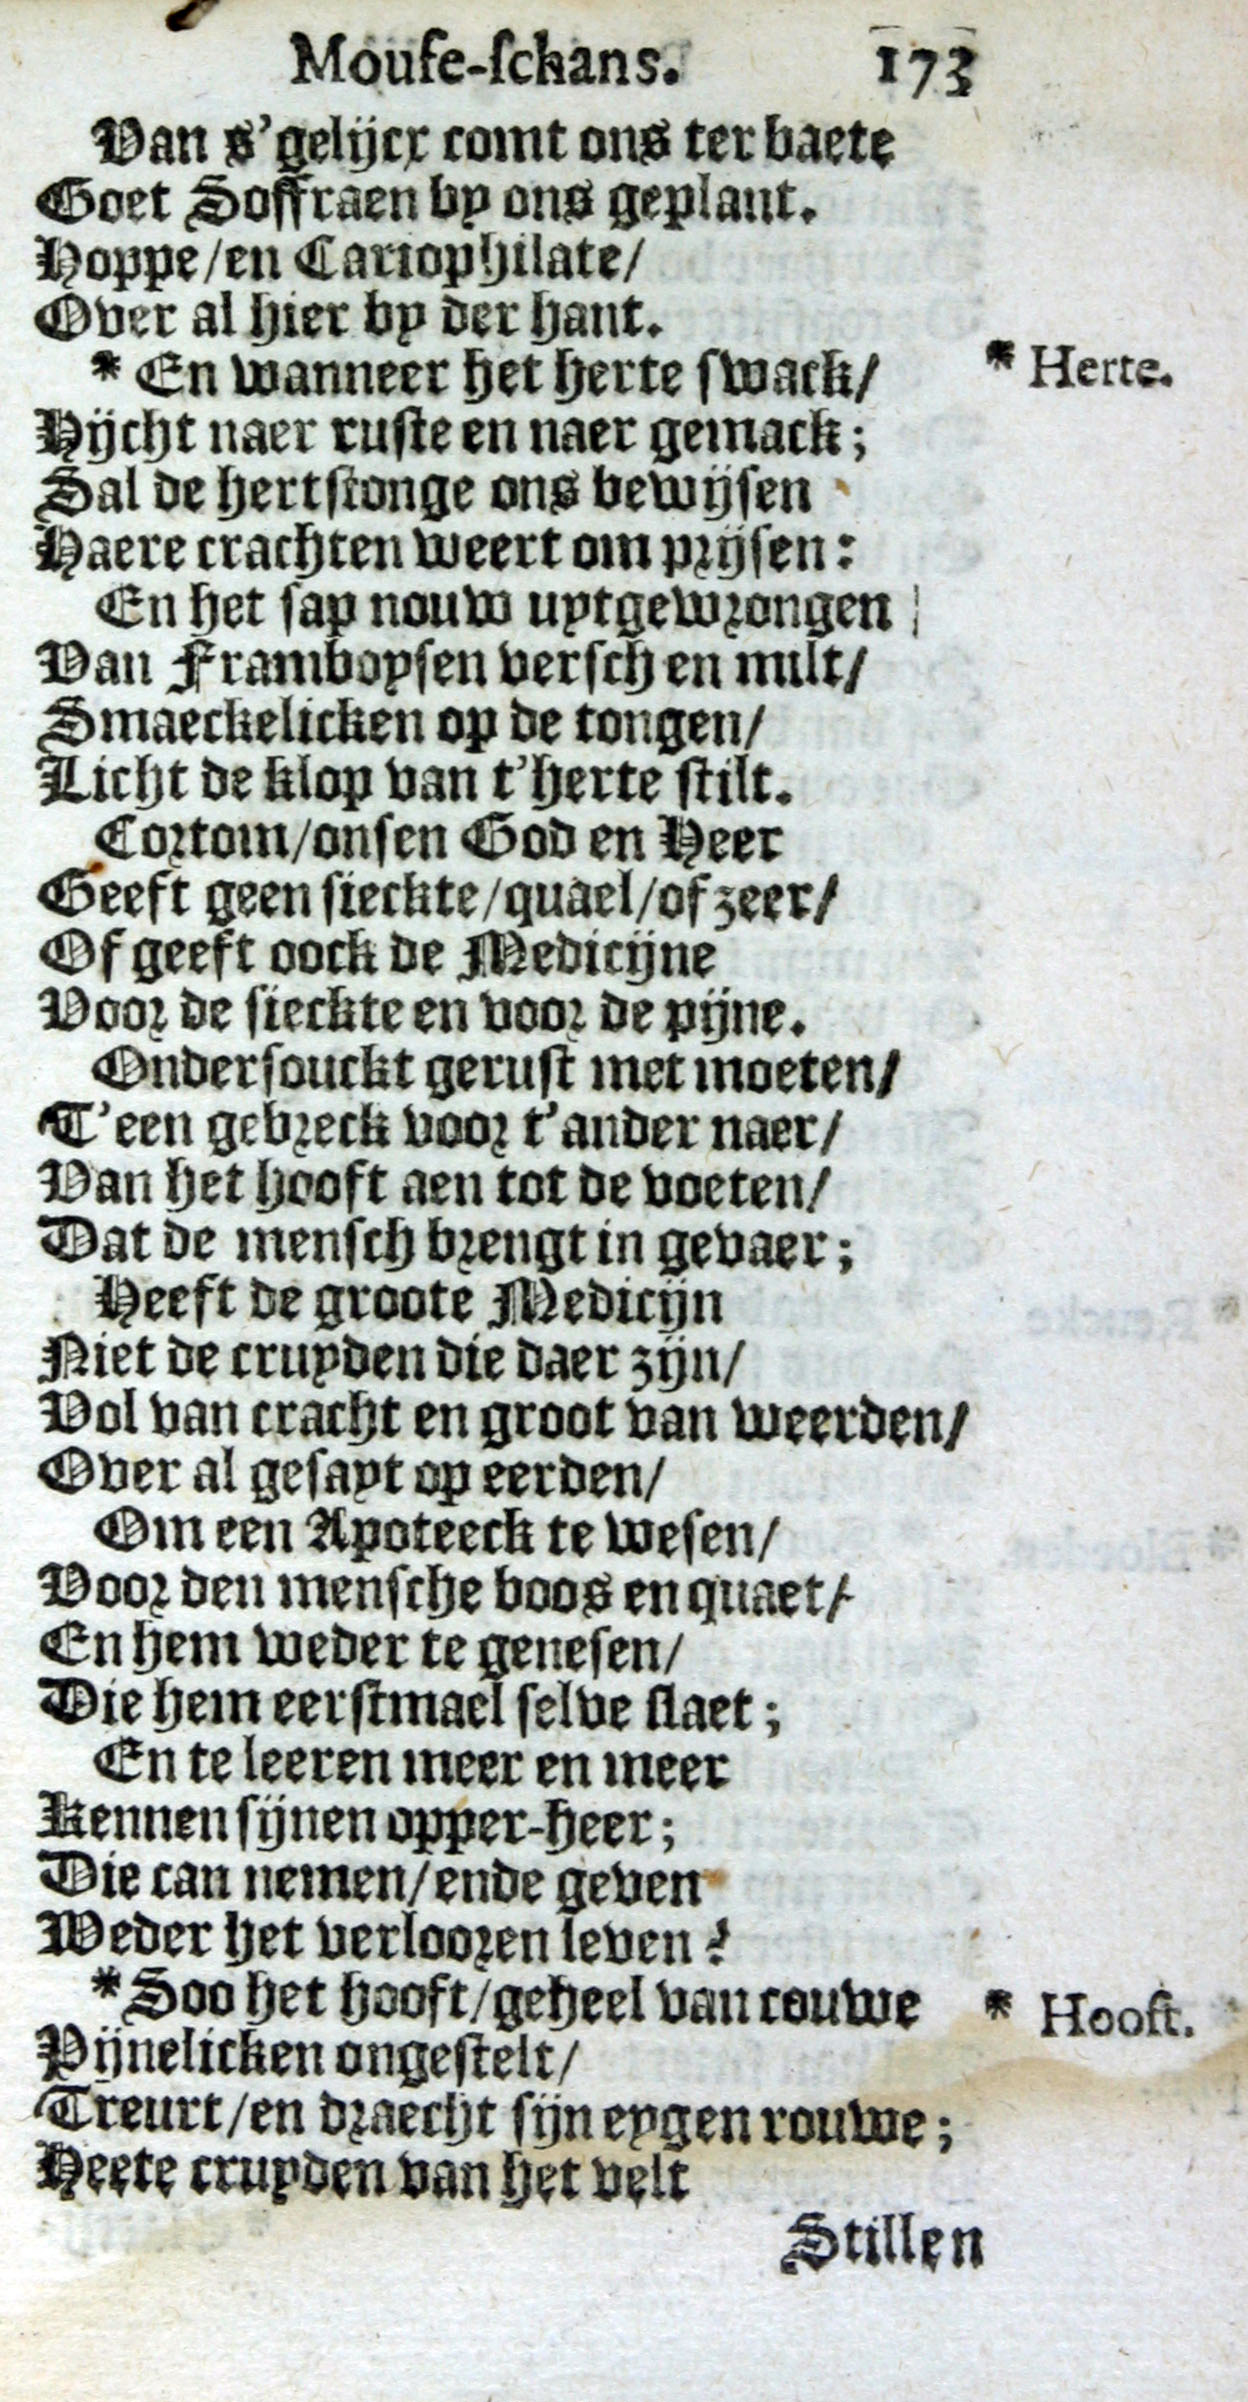 Mouse-schans. 173
Van s'gelijcx comt ons ter baete
Goet Soffraen by ons geplant.
Hoppe/en Cariophilate/
Over al hier by der hant.
* En wanneer het herte swack/ * Herte.
Hijcht naer ruste en naer gemack;
Sal de hertstonge ons bewijsen
Haere crachten weert om prijsen:
En het sap nouw uytgewrongen
Van Framboysen versch en milt/
Smaeckelicken op de tongen/
Licht de klop van t'herte stilt.
Cortom/onsen God en Heer
Geeft geen sieckte/quael/of zeer/
Of geeft oock de Medicijne
Voor de sieckte en voor de pijne.
Ondersouckt gerust met moeten/
T'een gebreck voor t'ander naer/
Van het hooft aen tot de voeten/
Dat de mensch brengt in gevaer;
Heeft de groote Medicijn
Niet de cruyden die daer zijn/
Vol van cracht en groot van weerden/
Over al gesayt op eerden/
Om een Apoteeck te wesen/
Voor den mensche boos en quaet/
En hem weder te genesen/
Die hem eerstmael selve slaet;
En te leeren meer en meer
Kennen sijnen opper-heer;
Die can nemen/ende geven
Weder het verlooren leven?
* Soo het hooft/geheel van couwe * Hooft.
Pijnelicken ongestelt/
Treurt/en draecht sijn eygen rouwe;
Heete cruyden van het velt
Stillen